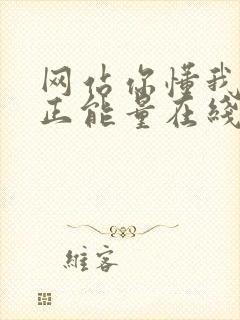 网站你懂我
正能量在线
维客